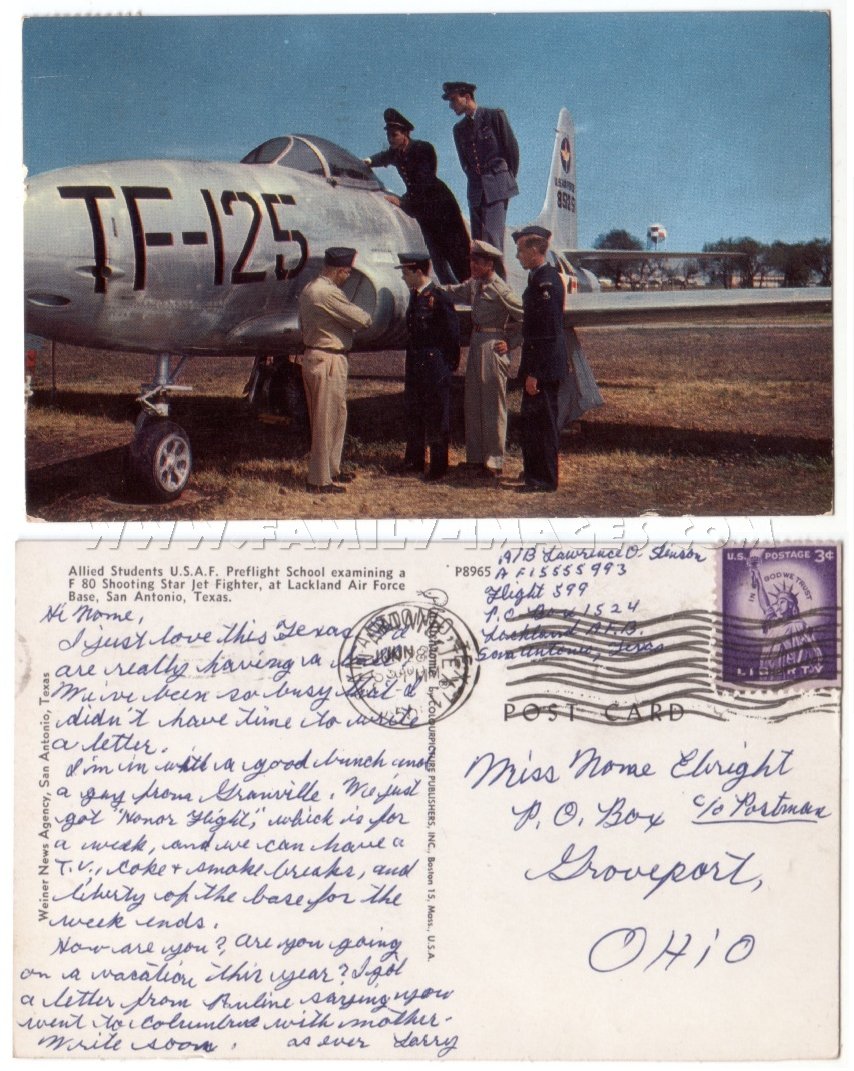 TF-125
U.S. AIR FORCE
WWW.FAMILY-IMAGES.COM
Allied Students U.S.A.F. Preflight School examining a
F 80 Shooting Star Jet Fighter, at Lackland Air Force
Base, San Antonio, Texas.
P8965
Hi Nome,
I just love this Texas
are really having a
We've been so busy that I
didn't have time to write
a letter.
I'm in with a good bunch and
a guy from Granville. We just
got "Honor Flight," which is for
a week, and we can have a
T.V., coke + smoke breaks, and
liberty of the base for the
week ends.
How are you?, Are you going
on a vacation this year? I got
a letter from Auline saying you
went to Columbus with mother.
Write soon. as ever Larry
Weiner News Agency, San Antonio, Texas
by COLOURPICTURE PUBLISHERS, INC., Boston 15, Mass., U.S.A.
A/B Lawrence O. Slenson
AF15555993
Flight 599
P.O. Box 1524
Lackland A.F.B.
San Antonio, Texas
JUN
U.S. POSTAGE 3¢
IN GOD WE TRUST
LIBERTY
POST CARD
Miss Nome Ebright
P.O. Box c/o Postman
Groveport,
OHIO